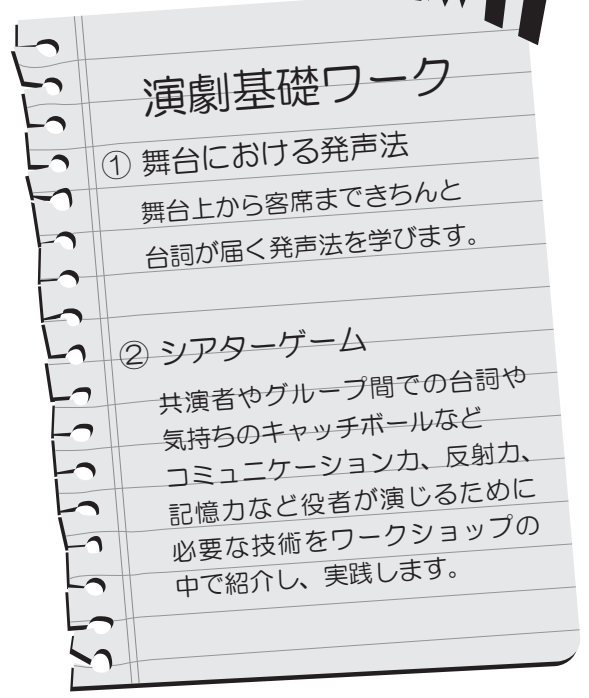 演劇基礎ワーク
① 舞台における発声法
舞台上から客席まできちんと
台詞が届く発声法を学びます。
② シアターゲーム
共演者やグループ間での台詞や
気持ちのキャッチボールなど
コミュニケーション力、反射力、
記憶力など役者が演じるために
必要な技術をワークショップの
中で紹介し、実践します。